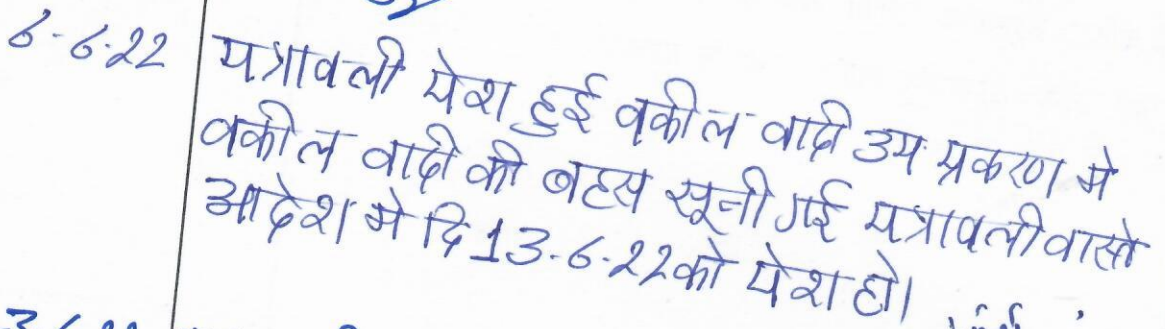 6-6-22 पत्रावली पेश हुई वकील वादी उप. प्रकरण मे
वकील वादी की बहस सूनी गई पत्रावली वास्ते
आदेश मे दि 13-6-22 को पेश हो।